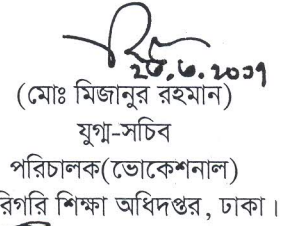 (মোঃ মিজানুর রহমান)
যুগ্ম-সচিব
পরিচালক(ভোকেশনাল)
রিগরি শিক্ষা অধিদপ্তর, ঢাকা।